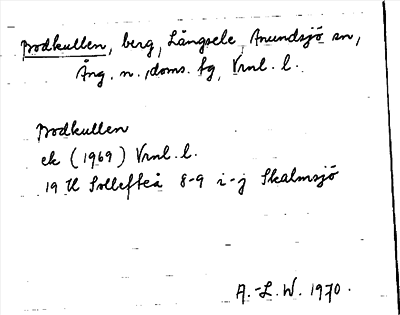 Brodkullen, berg, Långsele, Anundsjö sn,
Ång. n. doms. fg, Vrnl. l.
Brodkullen
ek (1969) Vrnl. l.
19 H Sollefteå 8-9 i-j Skalmsjö
A.-L. W. 1970.